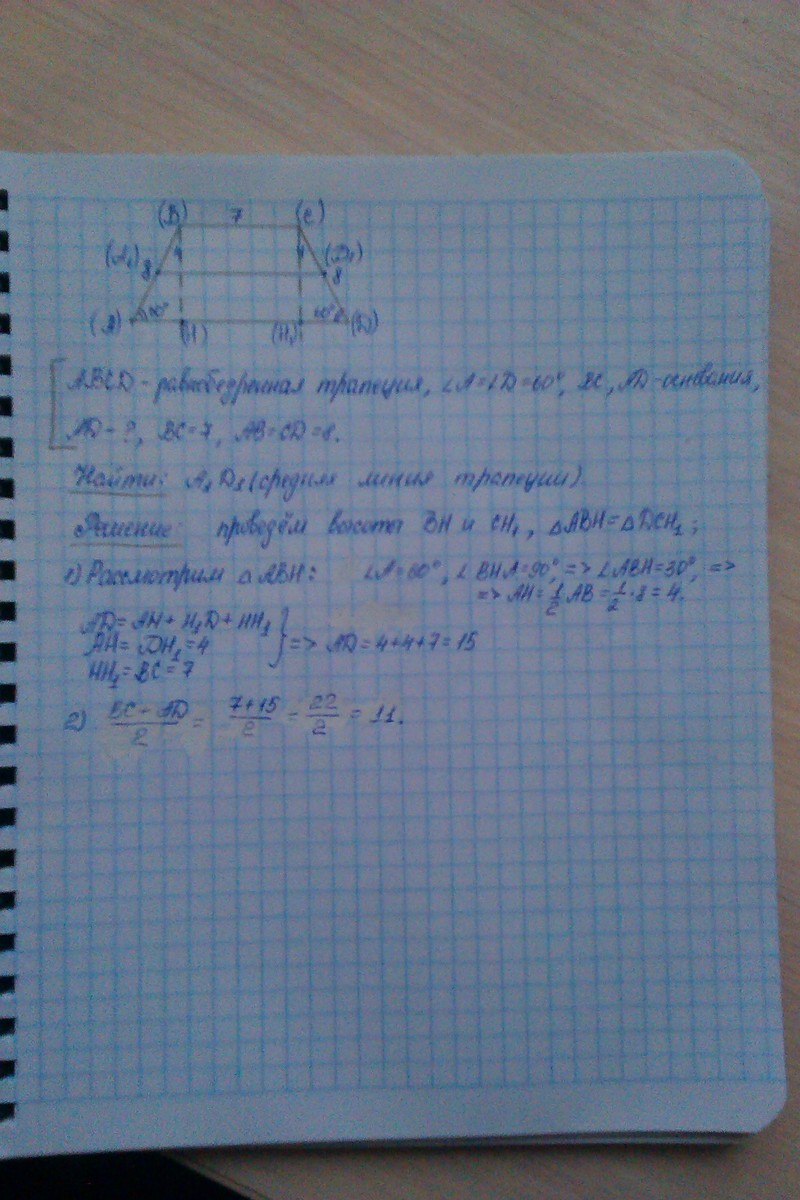 (B) 7 (C)
(A₁) 8 (D₁) 8
(A) 60° (H) (H₁) 60° (D)
ABCD - равнобедренная трапеция, ∠A=∠D=60°, BC, AD-основания,
AD - ?, BC=7, AB=CD=8.
Найти: A₁D₁ (средняя линия трапеции).
Решение: проведём высоты BH и CH₁, △ABH=△DCH₁;
1) Рассмотрим △ABH: ∠A=60°, ∠BHA=90°, => ∠ABH=30°, =>
=> AH=1/2 AB=1/2·8=4.
AD=AH+H₁D+HH₁
AH=DH₁=4 } => AD=4+4+7=15
HH₁=BC=7
2) BC+AD/2 = 7+15/2 = 22/2 = 11.